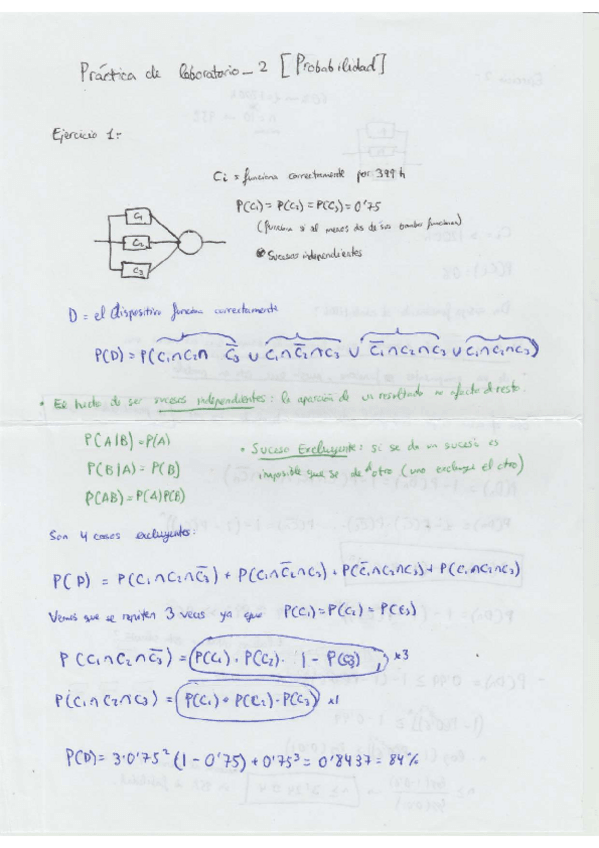 Práctica de laboratorio_2 [Probabilidad]
Ejercicio 1:-
Ci = funciona correctamente por 399 h
P(C1) = P(C2) = P(C3) = 0'75
(funciona si al menos dos de sus bombas funcionan)
Sucesos independientes
C1
C2
C3
D = el dispositivo funciona correctamente
P(D) = P(C1∩C2∩C̅3 ∪ C1∩C̅2∩C3 ∪ C̅1∩C2∩C3 ∪ C1∩C2∩C3)
• El hecho de ser sucesos independientes: la aparición de un resultado no afecta al resto.
P(A|B) = P(A)
P(B|A) = P(B)
P(AB) = P(A)P(B)
• Suceso Excluyente: si se da un suceso es
imposible que se de el otro (uno excluye el otro)
Son 4 casos excluyentes:
P(D) = P(C1∩C2∩C̅3) + P(C1∩C̅2∩C3) + P(C̅1∩C2∩C3) + P(C1∩C2∩C3)
Vemos que se repiten 3 veces ya que P(C1) = P(C2) = P(C3)
P(C1∩C2∩C̅3) = P(C1) · P(C2) · 1 - P(C3) x3
P(C1∩C2∩C3) = P(C1) · P(C2) · P(C3) x1
P(D) = 3·0'75² (1 - 0'75) + 0'75³ = 0'8437 = 84%